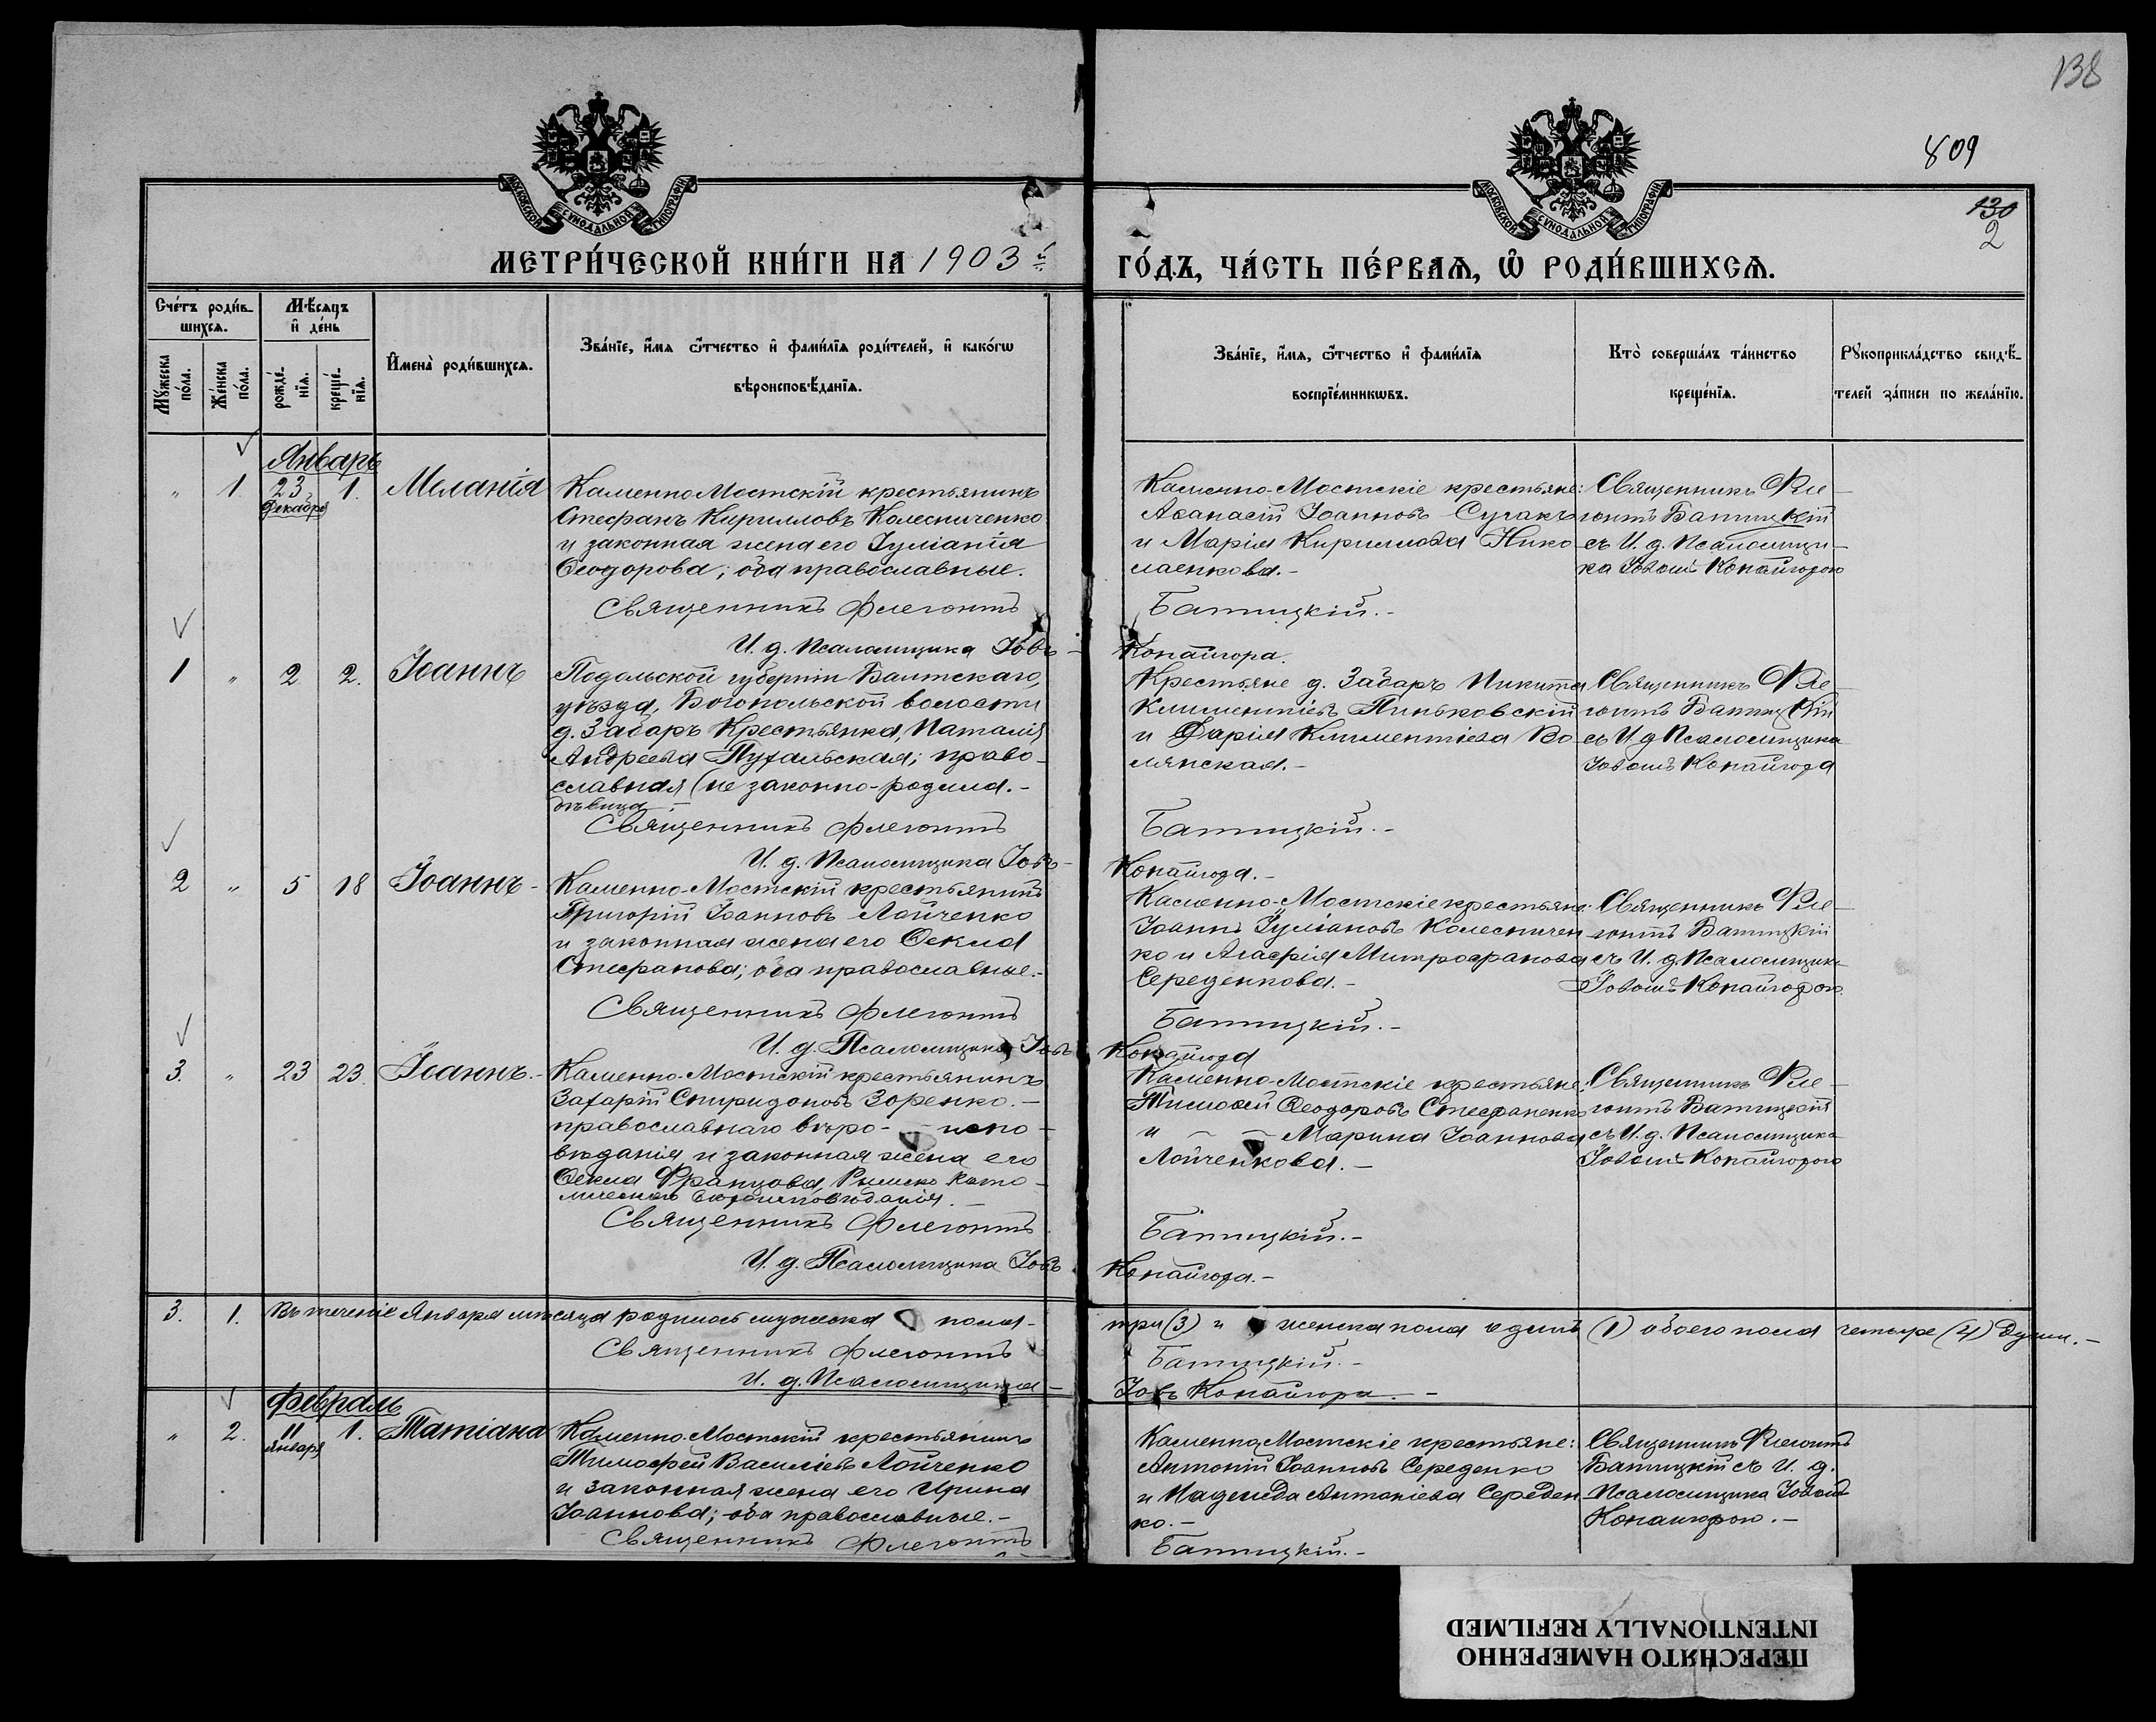 138
809
130
2
МОСКОВСКОЙ СѴНОДАЛЬНОЙ ТИПОГРАФІИ
МОСКОВСКОЙ СѴНОДАЛЬНОЙ ТИПОГРАФІИ
МЕТРИ́ЧЕСКОЙ КНИ́ГИ НА 1903 й
ГО́ДЪ, ЧА́СТЬ ПЕ́РВАѦ, Ѽ РОДИ́ВШИХСѦ.
Сче́тъ роди́в-
шихсѧ.
Мꙋ́жеска по́ла.
Же́нска по́ла.
Мѣ́сѧцъ
и҆ де́нь
рожде́-
нїѧ.
креще́-
нїѧ.
И҆мена̀ роди́вшихсѧ.
Зва́нїе, и҆́мѧ ѻ҆́тчество и҆ фами́лїѧ роди́телей, и҆ како́гѡ
вѣроисповѣ́данїѧ.
Зва́нїе, и҆́мѧ, ѻ҆́тчество и҆ фами́лїѧ
воспрїе́мникѡвъ.
Кто̀ соверша́лъ та́инство
креще́нїѧ.
Рꙋкоприкла́дство свидѣ́-
телей за́писи по жела́нїю.
Январь
" 1. 23 Декабря 1. Меланія
Каменно Мостскій крестьянинъ
Стефанъ Кирилловъ Колесниченко
и законная жена его Іуліанія
Ѳеодорова; оба православные.
Священникъ Флегонтъ
И. д. Псаломщика Іовъ
Каменно-Мостскіе крестьяне:
Аѳанасій Іоанновъ Сугакъ
и Марія Кириллова Нико-
лаенкова.-
Батицкій.-
Копайгора.
Священникъ Фле-
гонтъ Батицкій
съ И. д. Псаломщи-
ка Іовомъ Копайгорою
1 " 2 2. Іоаннъ
Подольской губерніи Балтскаго,
уѣзда, Богопольской волости
д. Забаръ Крестьянка, Наталія
Андреева Пухальская; право-
славная (не законно-родила.-
дѣвица.-
Священникъ Флегонтъ
И. д. Псаломщика Іовъ-
Крестьяне д. Забаръ Никита
Климентіевъ Пиньковскій
и Дарія Климентіева Во-
лянская.-
Батицкій.-
Копайгора.-
Священникъ Фле-
гонтъ Батицкій
съ И д Псаломщика
Іовомъ Копайгора
2 " 5 18 Іоаннъ-
Каменно-Мостскій крестьянинъ
Григорій Іоанновъ Лойченко
и законная жена его Ѳекла
Стефанова; оба православные.-
Священникъ Флегонтъ
И. д. Псаломщика Іовъ
Каменно-Мостскіе крестьяне:
Іоаннъ Іуліановъ Колесничен
ко и Агафія Митрофанова
Середенкова.-
Батицкій.-
Копайгора
Священникъ Фле-
гонтъ Батицкій
съ И. д. Псаломщика
Іовомъ Копайгорою.
3. " 23 23. Іоаннъ.-
Каменно-Мостскій крестьянинъ
Захарій Спиридоновъ Зоренко.-
православнаго вѣро- - испо-
вѣданія и законная жена его
Ѳекла Францова, Римско като-
лическаго вѣроисповѣданія.-
Священникъ Флегонтъ
И. д. Псаломщика Іовъ
Каменно-Мостскіе крестьяне:
Тимоѳей Ѳеодоровъ Стефаненко
и - - Марина Іоаннова
Лойченкова.-
Батицкій.-
Копайгора.-
Священникъ Фле-
гонтъ Батицкій
съ И. д. Псаломщика
Іовомъ Копайгорою
3. 1. Въ теченіе Января мѣсяца родилось мужеска пола- три (3) и женска пола одинъ (1) обоего пола четыре (4) Души.-
Священникъ Флегонтъ Батицкій.-
И. д. Псаломщика- Іовъ Копайгора.-
Февраль
" 2. 11 Января 1. Татіана
Каменно-Мостскій крестьянинъ
Тимофей Василіевъ Лойченко
и законная жена его Ирина
Іоаннова; оба православные.-
Священникъ Флегонтъ
Каменно-Мостскіе крестьяне:
Антоній Іоанновъ Середенко
и Надежда Антоніева Середен-
ко.-
Батицкій.-
Священникъ Флегонтъ
Батицкій съ И. д.
Псаломщика Іовомъ
Копайгорою.-
ПЕРЕСНЯТО НАМЕРЕННО
INTENTIONALLY REFILMED